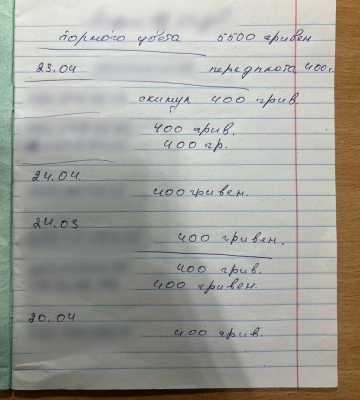 чорного цвета 5500 гривен
23.04 передплата 400г.
скинул 400 грив.
400 грив.
400 гр.
24.04
400 гривен.
24.03
400 гривен.
400 грив.
400 гривен.
20.04
400 грив.